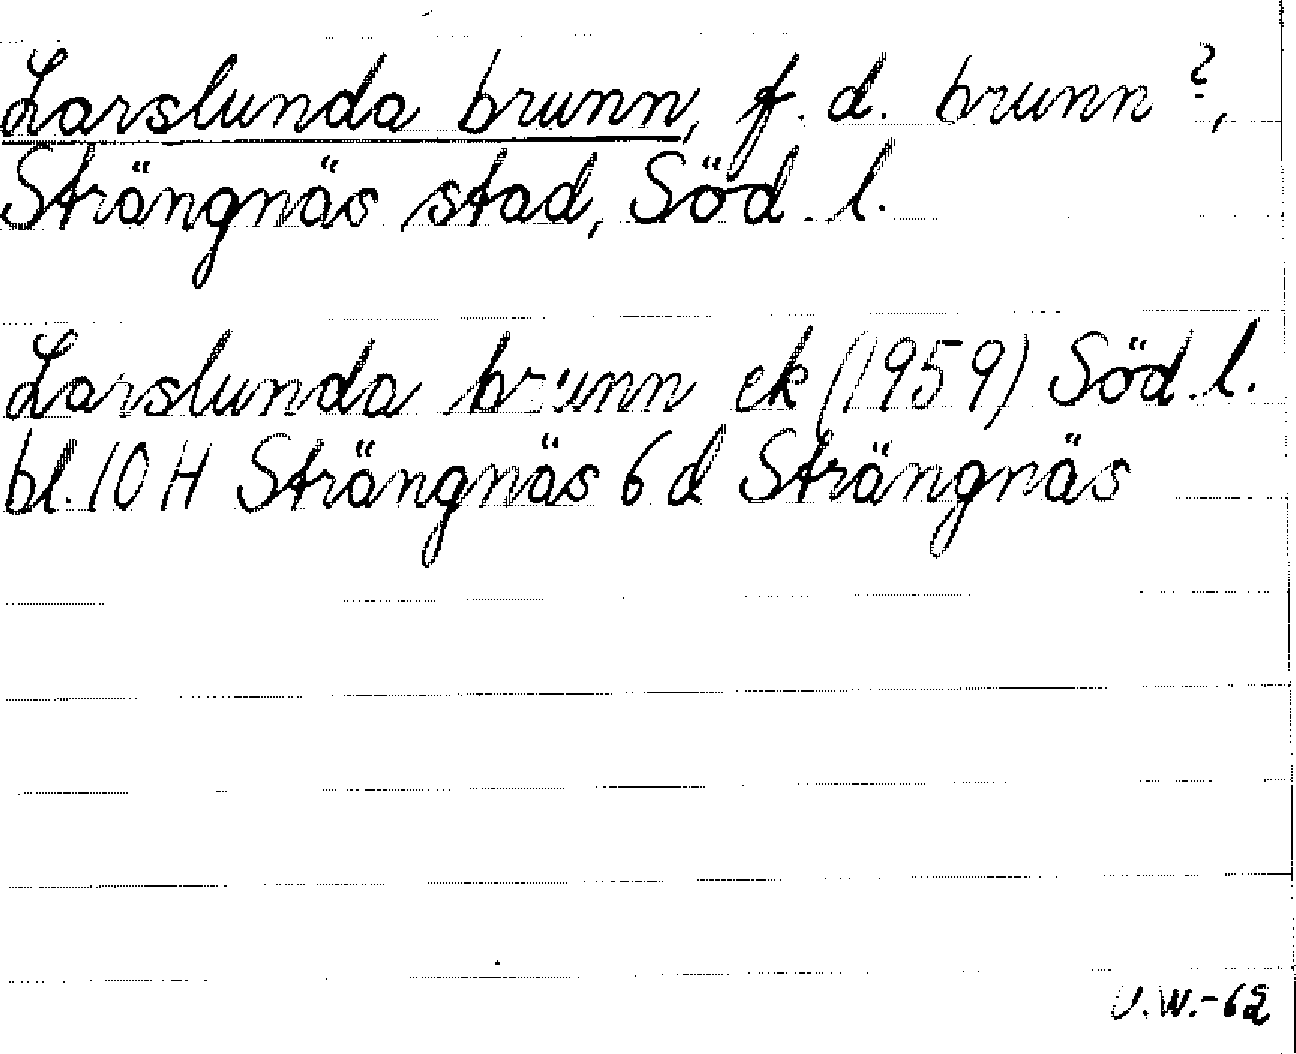 Larslunda brunn, f.d. brunn?,
Strängnäs stad, Söd. l.
Larslunda brunn ek (1959) Söd. l.
bl. 10 H Strängnäs 6 d Strängnäs
U.W.-62